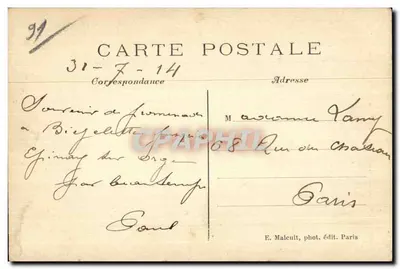 91
CARTE POSTALE
31-7-14
Correspondance
Adresse
Souvenir de promenade
à Bicyclette
Epinay sur Orge
par beau temps
Paul
Madame Lamy
68 Rue du Chateau
Paris
E. Malcuit, phot. édit. Paris
CPAPHIL